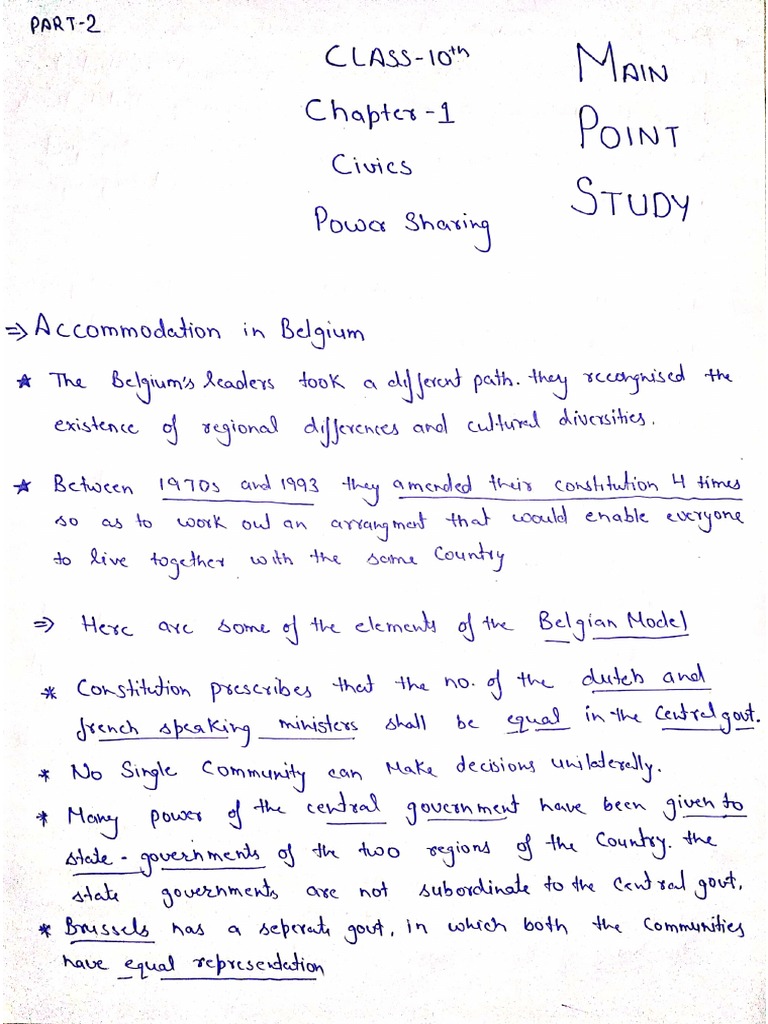 PART-2
CLASS-10th
Chapter-1
Civics
Power Sharing
MAIN
POINT
STUDY
⇒ Accommodation in Belgium
* The Belgium's leaders took a different path. they recongnised the
existence of regional differences and cultural diversities.
* Between 1970s and 1993 they amended their constitution 4 times
so as to work out an arrangment that would enable everyone
to live together with the same Country
⇒ Here are some of the elements of the Belgian Model
* Constitution prescribes that the no. of the dutch and
french speaking ministers shall be equal in the Central govt.
* No Single Community can Make decisions unilaterally.
* Many power of the central government have been given to
state-governments of the two regions of the Country. the
state governments are not subordinate to the Central govt.
* Brussels has a seperate govt. in which both the Communities
have equal representation